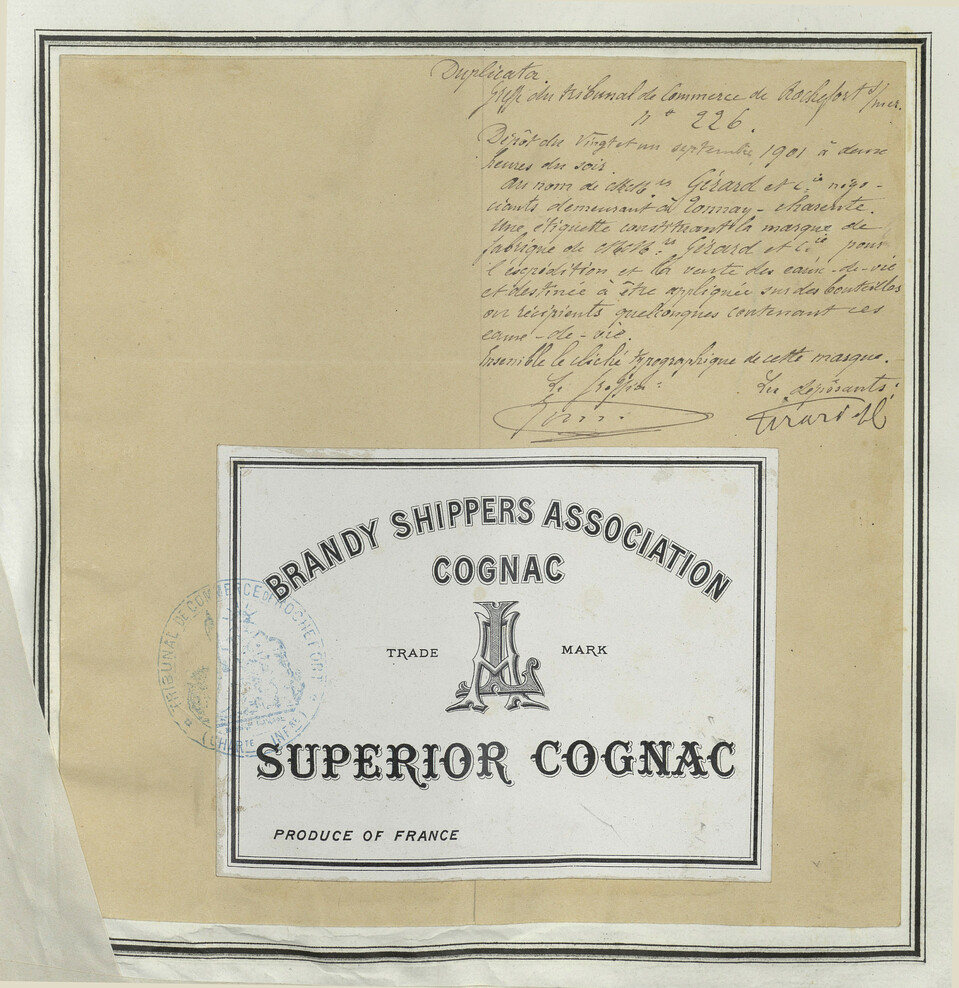 Duplicata.
Greffe du tribunal de Commerce de Rochefort s/mer.
n° 226.
Dépôt du vingt et un septembre 1901 à deux
heures du soir.
Au nom de MM.rs Gérard et C.ie négo-
ciants demeurant à Tonnay-Charente.
Une étiquette constituant la marque de
fabrique de MM.rs Gérard et C.ie pour
l'expédition et la vente des eaux-de-vie
et destinée à être appliquée sur des bouteilles
ou récipients quelconques contenant ces
eaux-de-vie.
Ensemble le cliché typographique de cette marque.
Le Greffier: Les déposants:
Gérard & C
BRANDY SHIPPERS ASSOCIATION
COGNAC
TRADE MARK
AL
SUPERIOR COGNAC
PRODUCE OF FRANCE
TRIBUNAL DE COMMERCE DE ROCHEFORT
(CHARTE INFRE)